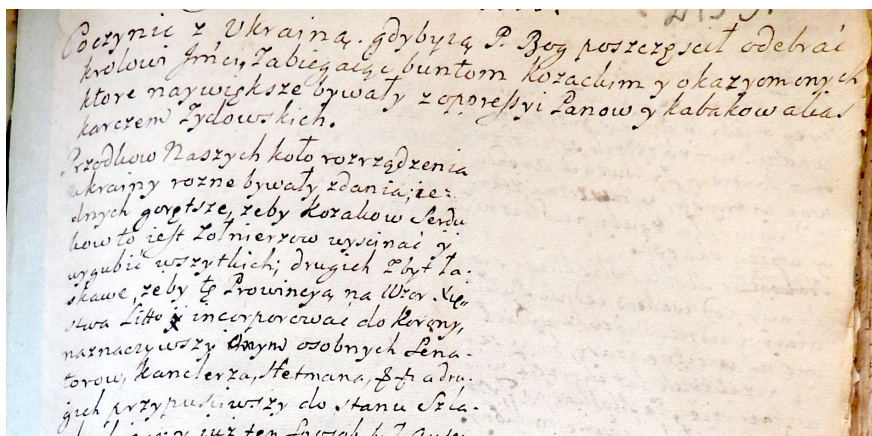 Poczynic z Ukrainą. gdybyią P. Bog poszczęscił odebrać
krolowi Jmći, Zabiegaiąc buntom Kozackim y okazyom onych
ktore naywiększe bywały z oppressyi Panow y kabakow alias
karczem Zydowskich.
Przodkow Naszych koło rozrządzenia
ukrainy rozne bywały zdania; ie:
dnych gorętsze, zeby Kozakow Serdu
kow to iest Zołnierzow wyscinać y
wygubić wszytkich; drugich Zbyt ła-
skawe, zeby tę Prowincyą na Wzor Xię-
stwa Litto incorporować do Korony,
naznaczywszy onym osobnych Sena-
torow, Kanclerza, Hetmana, a dru-
gich przypusciwszy do stanu Szla-
iuz ten sposob